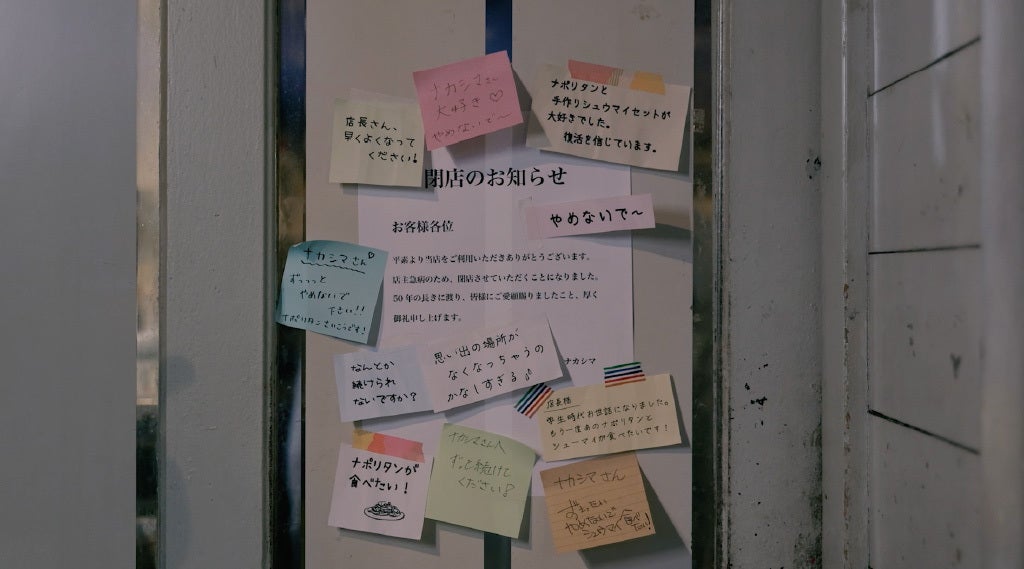 ナカシマさん
大好き♡
やめないで〜
店長さん、
早くよくなって
ください!
ナポリタンと
手作りシュウマイセットが
大好きでした。
復活を信じています。
閉店のお知らせ
お客様各位
平素より当店をご利用いただきありがとうございます。
店主急病のため、閉店させていただくことになりました。
50年の長きに渡り、皆様にご愛顧賜りましたこと、厚く
御礼申し上げます。
ナカシマ
やめないで〜
ナカシマさん♡
ずっっっと
やめないで
下さい!!
ナポリタンさいこうです!
なんとか
続けられ
ないですか?
思い出の場所が
なくなっちゃうの
かなしすぎる
店長様
学生時代お世話になりました。
もう一度あのナポリタンと
シューマイが食べたいです!
ナポリタンが
食べたい!
ナカシマさん
ずっと続けて
ください!
ナカシマさん
やめないで
シュウマイ食べたい!